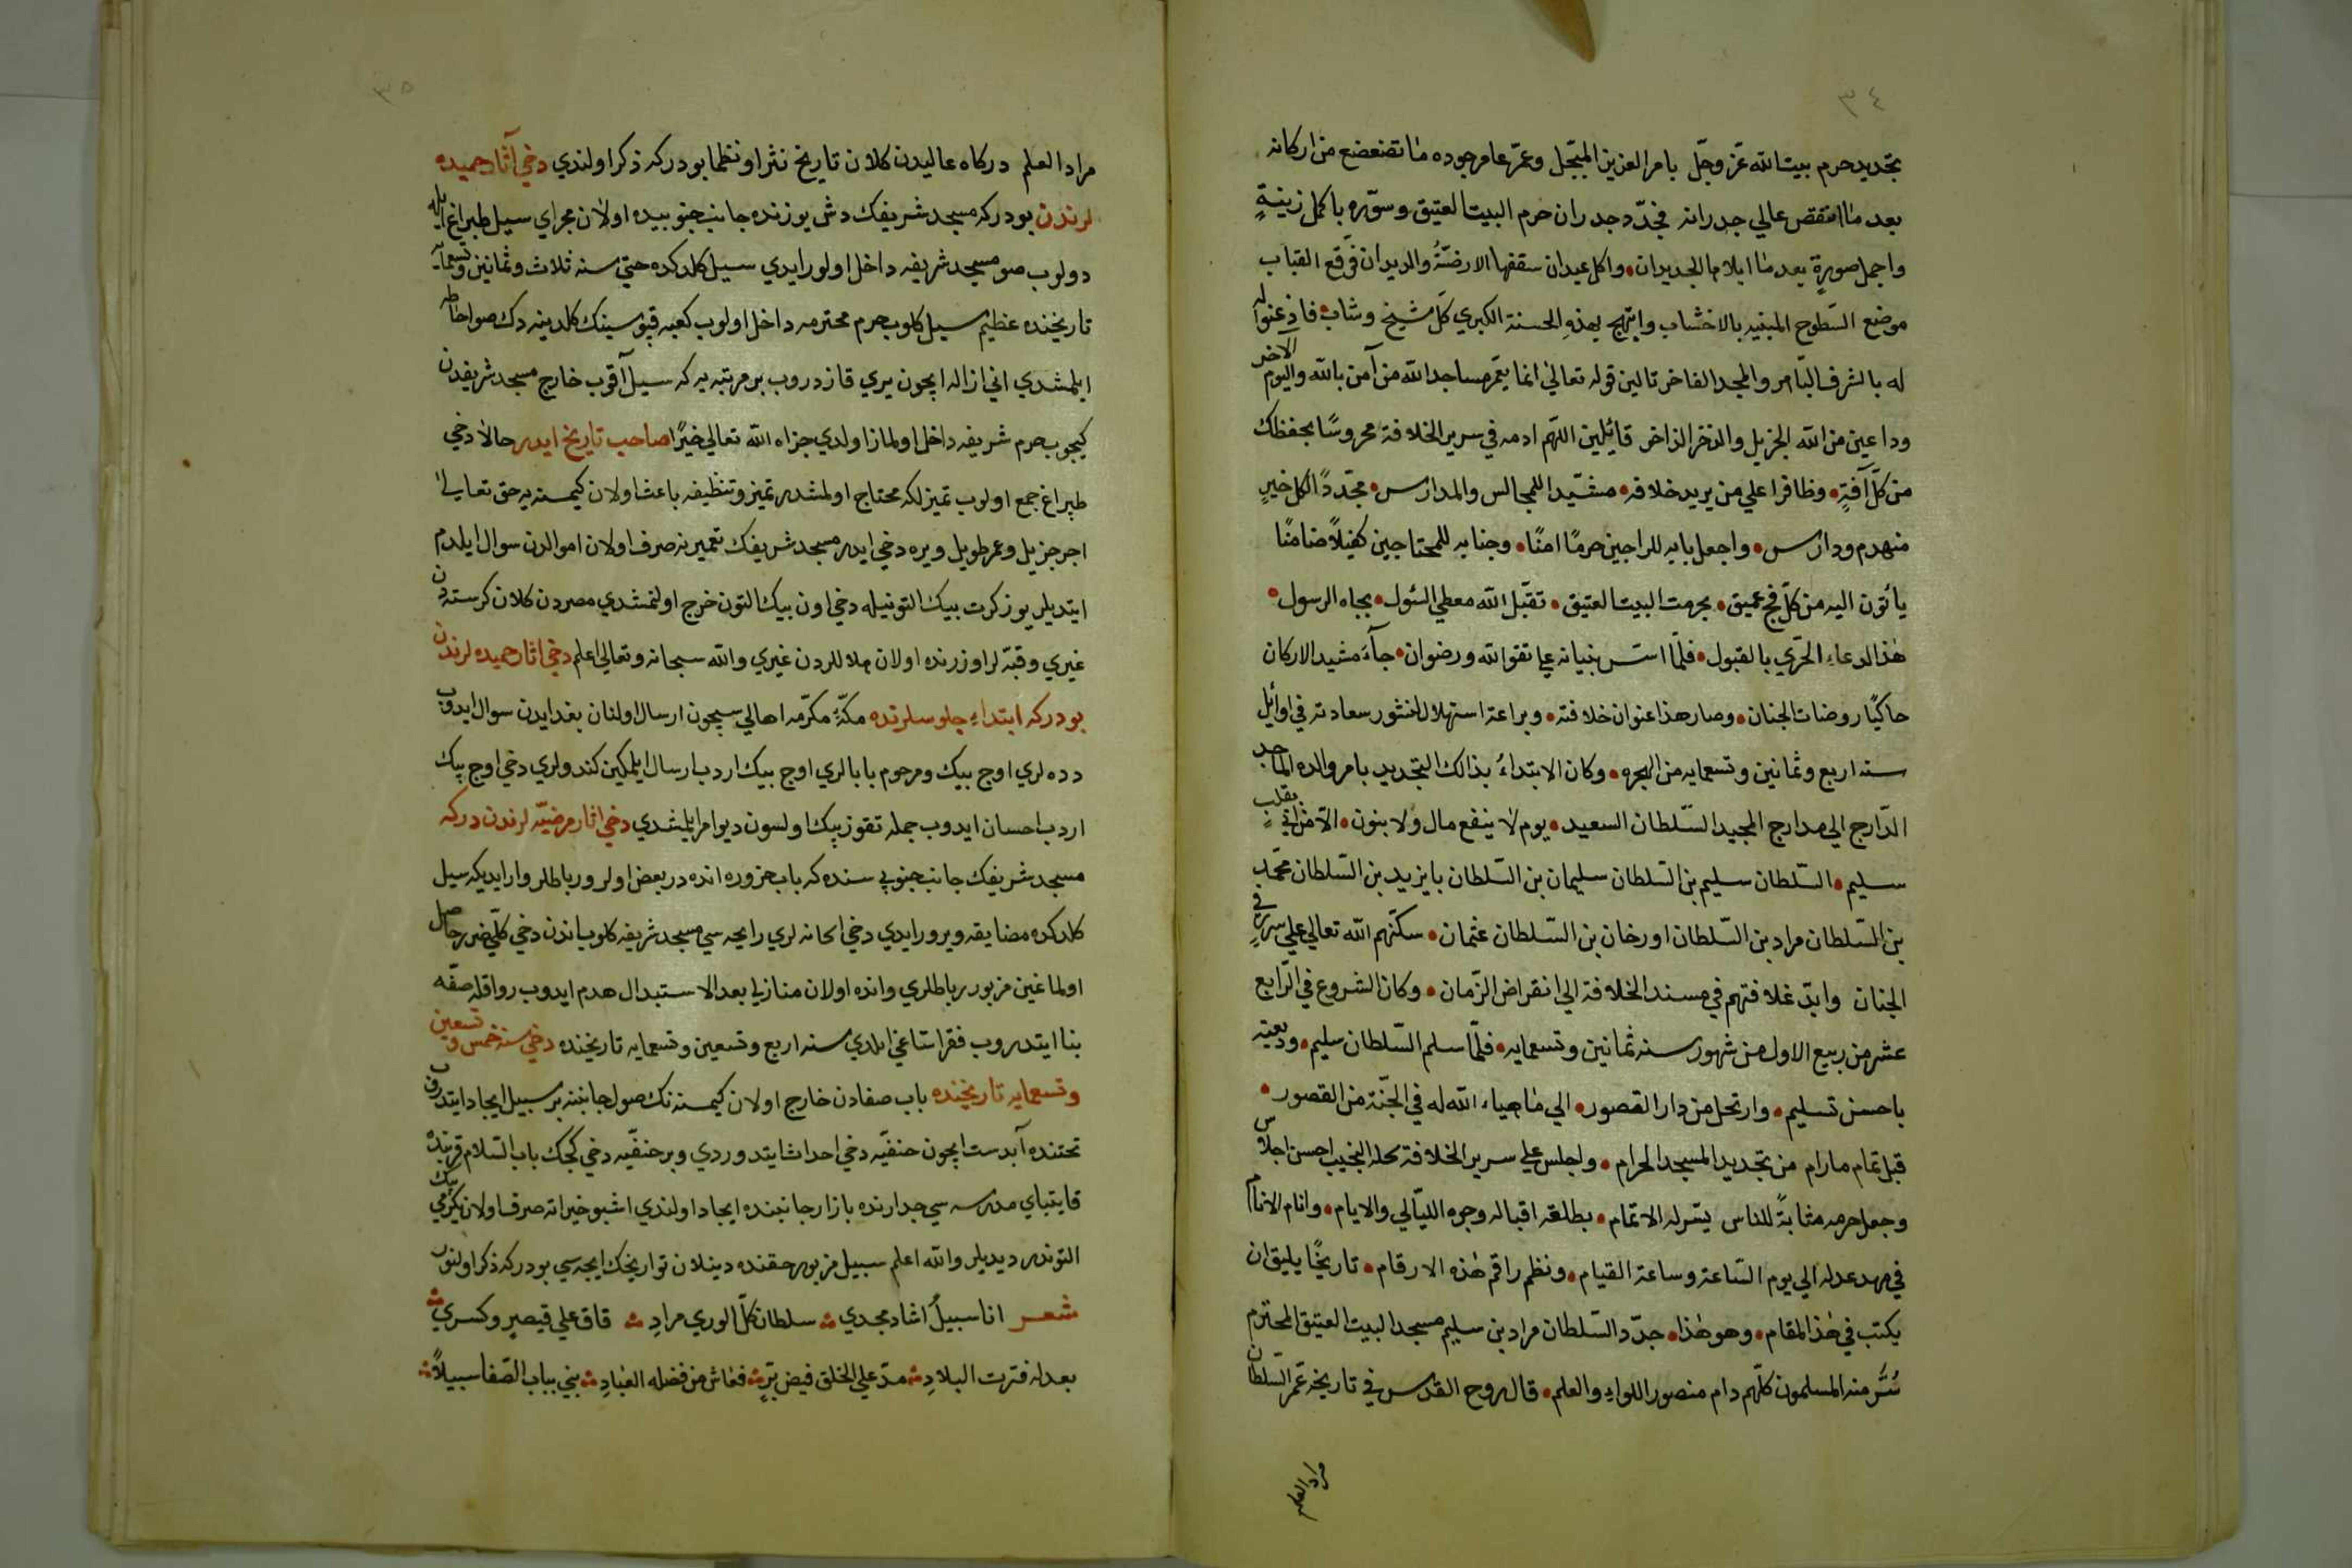 ٣٤
بتجديد حرم بيت الله عزّ وجّل بامر العزيز المبجّل وعمّر عامر جوده ما تضعضع من اركانه
بعد ما انتقض عالي جدرانه فجدّد جدران حرم البيت العتيق وسوّره باكمل زينةٍ
واجمل صورةٍ بعد ما ابلاها الجديدان واكل عيدان سقفها الارضةُ والديدان فوقع القباب
موضع السّطوح المبنيه بالاخشاب وابتهج بهذهِ الحسنة الكبري كلّ شيخ وشاب فاذعنوا
له بالشرف الباهر والمجد الفاخر تالين قوله تعالي انما يعمّر مساجد الله من آمن بالله واليوم الآخر
وداعين من الله الجزيل والذخر الزاخر قائلين اللهّم ادمه في سرير الخلافة محروسًا بحفظك
من كلّ آفةٍ وظافرا علي من يريد خلافه مشّيدا للمجالس والمدارس مجّددًا لكل خيرٍ
منهدم ودارس واجعل بابه للراجين حرمًا امنًا وجنابه للمحتاجين كفيلاً ضامنًا
يأتون اليه من كلّ فج عميق بحرمت البيت العتيق تقبّل الله معطي السئول بجاه الرسول
هذا الدعاء الحّري بالقبول فلمّا اسّس بنيانه علي تقوا الله ورضوان جآءَ مشيد الاركان
حاكيًا روضات الجنان وصار هذا عنوان خلافته وبراعة استهلال منثور سعادته في اوائل
سنه اربع وثمانين وتسعمايه من الهجره وكان الابتداءُ بذالك التجديد بامر والده الماجد
الدّارج الي مدارج المجيد السّلطان السعيد يوم لا ينفع مال ولا بنون الّا من اتي بقلبٍ
سليم السّلطان سليم بن السّلطان سليمان بن السّلطان بايزيد بن السّلطان محمّد
بن السّلطان مراد بن السّلطان اورخان بن السّلطان عثمان سكنّهم الله تعالي علي سرر في
الجنان وابّد خلافتهم في مسند الخلافة الي انقراض الزّمان وكان الشروع في الرّابع
عشر من ربيع الاول من شهور سنه ثمانين وتسعمايه فلمّا سلم السّلطان سليم وديعته
باحسن تسليم وارتحل من دار القصور الي ما هياء الله له في الجنّة من القصور
قبل تمام مارام من تجديد المسجد الحرام واجلس علي سرير الخلافة نجله النجيب احسن اجلاس
وجعل حرمه مثابةً للناس يسّر له الاتمام بطلعة اقباله وجوه الليّالي والايام وانام الانام
في مهد عدله الي يوم السّاعة وساعة القيام ونظم راقم هذه الارقام تاريخًا يليق ان
يكتب في هذا المقام وهو هذا جدّد السّلطان مراد بن سليم مسجد البيت العتيق المحترم
سُرَّ منه المسلمون كلّهم دام منصور اللواءِ والعلم قال روح القدس في تاريخه عمّر السّلطان
مراد العلم
٣٥
مراد العلم دركاه عاليدن كلان تاريخ نثرا ونظما بودركه ذكر اولندي دخي آثار حميده
لرندن بودركه مسجد شريفك دش يوزنده جانب جنوبيده اولان مجراي سيل طبراغ ايله
دولوب صو مسجد شريفه داخل اولور ايدي سيل كلدكده حتي سنه ثلاث وثمانين وتسعمايه
تاريخنده عظيم سيل كلوب حرم محترمه داخل اولوب كعبه قپوسينك كلدينه دك صو احاطه
ايلمشدي اني ازاله ايچون يري قازدروب بر مرتبه يه كه سيل آقوب خارج مسجد شريفدن
كيجوب حرم شريفه داخل اولماز اولدي جزاه الله تعالي خيرًا صاحب تاريخ ايدر حالا دخي
طپراغ جمع اولوب تميزلكه محتاج اولمشدر تميز وتنظيفه باعث اولان كيمسنه يه حق تعالي
اجر جزيل وعمر طويل ويره دخي ايدر مسجد شريفك تعميرنه صرف اولان اموالدن سوال ايلدم
ايتديلر يوز كرت بيك التونيله دخي اون بيك التون خرج اولنمشدي مصردن كلان كرستهدن
غيري وقبّه لر اوزرنده اولان هلاللردن غيري والله سبحانه وتعالي اعلم دخي اثار حميده لرندن
بودركه ابتداءِ جلوسلرنده مكّهٔ مكرّمه اهالي سيچون ارسال اولنان بغدايدن سوال ايدوب
دده لري اوچ بيك ومرحوم بابالري اوچ بيك اردب ارسال ايلمكين كندولري دخي اوچ بيك
اردب احسان ايدوب جمله تقوز بيك اولسون ديو امر ايلمشدي دخي اثار مرضيّه لرندن دركه
مسجد شريفك جانب جنوبي سنده كه باب حزوره انده در بعض اولر ورباطلر وار ايديكه سيل
كلدكده مضايقه ويرور ايدي دخي الخانه لري رايحه سي مسجد شريفه كلوب اندن دخي كلّي ضرر حاصل
اولماغين مزبور رباطلري وانده اولان منازلي بعد الاستبدال هدم ايدوب رواقله صفّه
بنا ايتدروب فقرا ستاغي ايلدي سنه اربع وتسعين وتسعمايه تاريخنده دخي سنه خمس وتسعين
وتسعمايه تاريخنده باب صفادن خارج اولان كيمسنه نك صول جانبنه بر سبيل ايجاد ايتدروب
تحتنده آبدست ايچون حنفيّه دخي احداث ايتدوردي وبر حنفيّه دخي كجك باب السّلام قربنده
قايتباي مدرسه سي جدارنده بازار جانبنده ايجاد اولندي اشبو خيراته صرف اولان يكرمي بيك
التوندر ديديلر والله اعلم سبيل مزبور حقنده دينلان تواريخك ايجه سي بودركه ذكر اولنور
شعر انا سبيلُ اشاد مجدي سلطان كلّ الوري مرادِ فاق علي قيصرٍ وكسري
بعدله قرت البلادِ مدّ علي الخلق فيض بّرٍ فعاش من فضله العبادِ بني بباب الصّفا سبيلاً